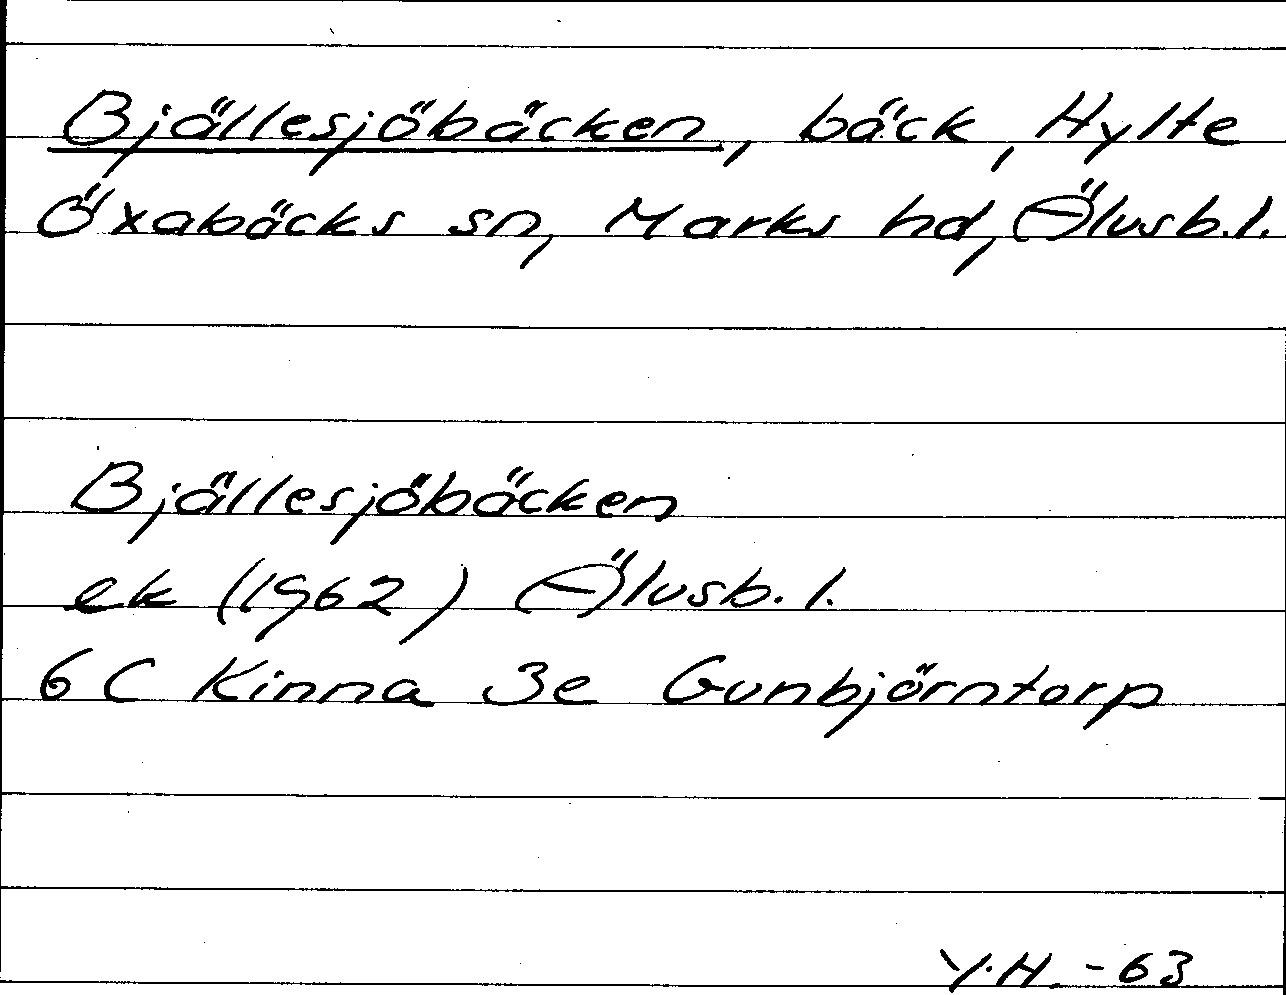 Bjällesjöbäcken, bäck, Hylte
Öxabäcks sn, Marks hd, Älvsb.l.
Bjällesjöbäcken
ek (1962) Älvsb.l.
6 C Kinna 3e Gunbjörntorp
Y.H. -63